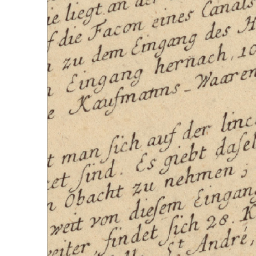 e liegt an der
f die Facon eines Canals
n zu dem Eingang des H
n Eingang hernach, 10
e Kaufmanns-Waaren
t man sich auf der linc
et sind. Es giebt dasel
n Obacht zu nehmen;
weit von diesem Eingang
weiter, findet sich 28. K
St André,